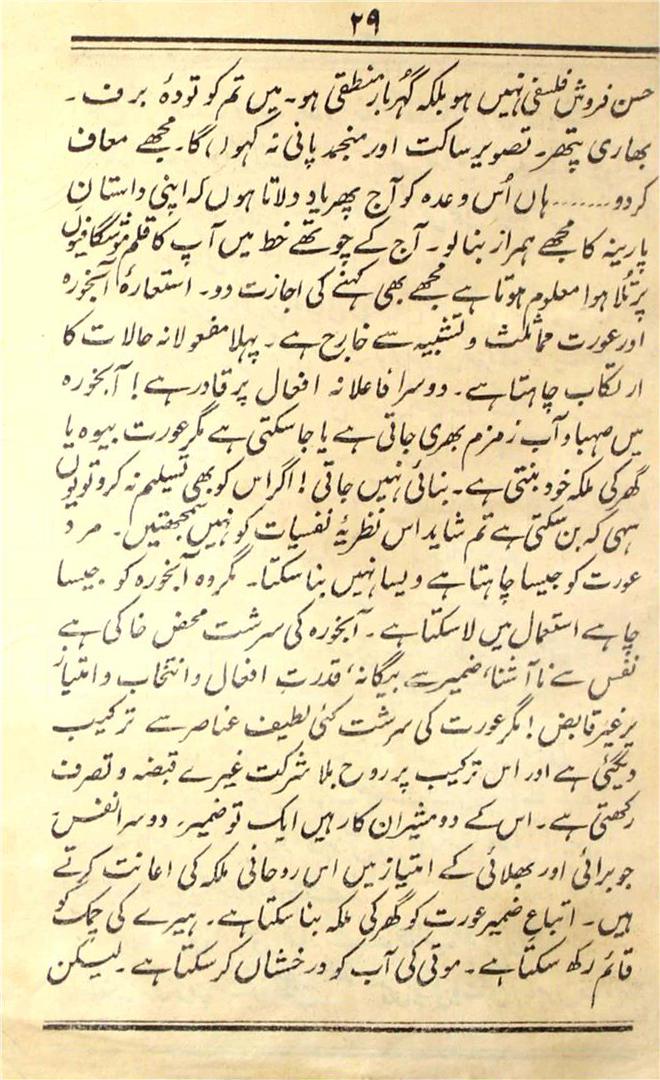 ۲۹
حسن فروش فلسفی نہیں ہو بلکہ گہر بار منطقی ہو۔ میں تم کو تودۂ برف۔
بھاری پتھر۔ تصویر ساکت اور منجمد پانی نہ کہوں گا۔ مجھے معاف
کردو۔۔۔۔۔۔۔ ہاں اُس وعدہ کو آج پھر یاد دلاتا ہوں کہ اپنی داستان
پارینہ کا مجھے ہمراز بنالو۔ آج کے چوتھے خط میں آپ کا قلم موشگافیوں
پر تُلا ہوا معلوم ہوتا ہے مجھے بھی کہنے کی اجازت دو۔ استعارۂ آبخورہ
اور عورت مماثلت و تشبیہ سے خارج ہے۔ پہلا مفعولانہ حالات کا
ارتکاب چاہتا ہے۔ دوسرا فاعلانہ افعال پر قادر ہے! آبخورہ
میں صہبا و آب زمزم بھری جاتی ہے یا جاسکتی ہے مگر عورت بیوہ یا
گھر کی ملکہ خود بنتی ہے۔ بنائی نہیں جاتی! اگر اس کو بھی تسلیم نہ کرو تو یوں
سہی کہ بن سکتی ہے تم شاید اس نظریۂ نفسیات کو نہیں سمجھتیں۔ مرد
عورت کو جیسا چاہتا ہے ویسا نہیں بنا سکتا۔ مگر وہ آبخورہ کو جیسا
چاہے استعمال میں لاسکتا ہے۔ آبخورہ کی سرشت محض خاکی ہے
نفس سے ناآشنا، ضمیر سے بیگانہ، قدرت افعال و انتخاب و امتیاز
پر غیر قابض! مگر عورت کی سرشت کئی لطیف عناصر سے ترکیب
دیگئی ہے اور اس ترکیب پر روح بلا شرکت غیرے قبضہ و تصرف
رکھتی ہے۔ اس کے دو مشیران کار ہیں ایک تو ضمیر۔ دوسرا نفس
جو برائی اور بھلائی کے امتیاز میں اس روحانی ملکہ کی اعانت کرتے
ہیں۔ اتباع ضمیر عورت کو گھر کی ملکہ بنا سکتا ہے۔ ہیرے کی چمک کو
قائم رکھ سکتا ہے۔ موتی کی آب کو درخشاں کر سکتا ہے۔ لیکن